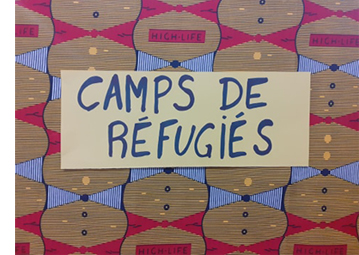 HIGH-LIFE
HIGH-LIFE
CAMPS DE
RÉFUGIÉS
HIGH-LIFE
HIGH-LIFE